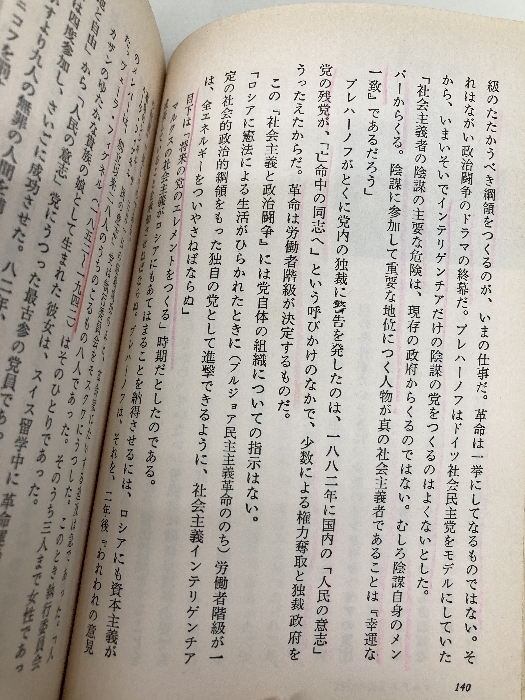 級のたたかうべき綱領をつくるのが、いまの仕事だ。革命は一挙にしてなるものではない。そ
れはながい政治闘争のドラマの終幕だ。プレハーノフはドイツ社会民主党をモデルにしていた
から、いまいそいでインテリゲンチアだけの陰謀の党をつくるのはよくないとした。
「社会主義者の陰謀の主要な危険は、現存の政府からくるのではない。むしろ陰謀自身のメン
バーからくる。陰謀に参加して重要な地位につく人物が真の社会主義者であることは『幸運な
一致』であるだろう」
プレハーノフがとくに党内の独裁に警告を発したのは、一八八二年に国内の「人民の意志」
党の残党が、「亡命中の同志へ」という呼びかけのなかで、少数による権力奪取と独裁政府を
うったえたからだ。革命は労働者階級が決定するものだ。
この『社会主義と政治闘争』には党自体の組織についての指示はない。
「ロシアに憲法による生活がひらかれたときに（ブルジョア民主主義革命ののち）労働者階級が一
定の社会的政治的綱領をもった独自の党として進撃できるように、社会主義インテリゲンチア
は、全エネルギーをついやさねばならぬ」
目下は「将来の党のエレメントをつくる」時期だとしたのである。
マルクスの社会主義がロシアにもあてはまることを納得させるには、ロシアにも資本主義が
プレハーノフは、それを、二年後『われわれの意見
140
八人のうちのこるもの八人であった。そのうち三人まで女性であっ
カザンのゆたかな貴族の娘として生まれた彼女は、スイス留学中に革命
から「人民の意志」党にうつった最古参の党員であっ
は四度参加し、さいごに成功させた。八二年、